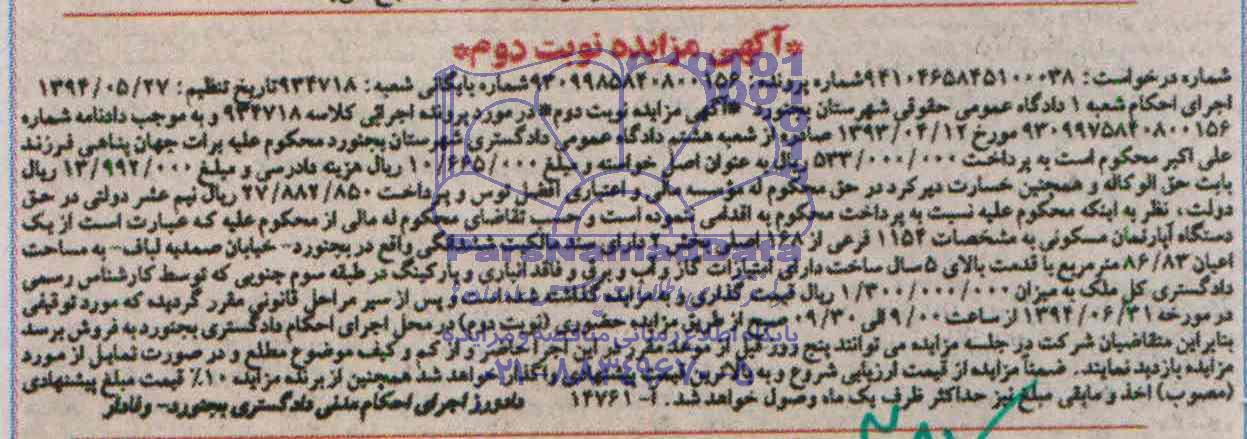 *آگهی مزایده نوبت دوم*
شماره درخواست: ۹۴۱۰۴۶۵۸۴۵۱۰۰۰۳۸ شماره پرونده: ۹۳۰۹۹۸۵۸۴۰۸۰۰۱۵۶ شماره بایگانی شعبه: ۹۳۴۷۱۸ تاریخ تنظیم: ۱۳۹۴/۰۵/۲۷
اجرای احکام شعبه ۱ دادگاه عمومی حقوقی شهرستان بجنورد *آگهی مزایده نوبت دوم* در مورد پرونده اجرائی کلاسه ۹۳۴۷۱۸ و به موجب دادنامه شماره
۹۳۰۹۹۷۵۸۴۰۸۰۰۱۵۶ مورخ ۱۳۹۳/۰۴/۱۲ صادره از شعبه هشتم دادگاه عمومی دادگستری شهرستان بجنورد محکوم علیه برات جهان پناهی فرزند
علی اکبر محکوم است به پرداخت ۵۳۳/۰۰۰/۰۰۰ ریال به عنوان اصل خواسته و مبلغ ۱۰/۶۶۵/۰۰۰ ریال هزینه دادرسی و مبلغ ۱۳/۹۹۲/۰۰۰ ریال
بابت حق الوکاله و همچنین خسارت دیرکرد در حق محکوم له موسسه مالی و اعتباری افضل توس و پرداخت ۲۷/۸۸۲/۸۵۰ ریال نیم عشر دولتی در حق
دولت، نظر به اینکه محکوم علیه نسبت به پرداخت محکوم به اقدامی ننموده است و حسب تقاضای محکوم له مالی از محکوم علیه که عبارت است از یک
دستگاه آپارتمان مسکونی به مشخصات ۱۱۵۴ فرعی از ۱۶۸ اصلی بخش ۲ دارای سند مالکیت ششدانگی واقع در بجنورد- خیابان صمدیه لباف- به مساحت
اعیان ۸۶/۸۳ متر مربع با قدمت بالای ۵ سال ساخت دارای امتیازات گاز و آب و برق و فاقد انباری و پارکینگ در طبقه سوم جنوبی که توسط کارشناس رسمی
دادگستری کل ملک به میزان ۱/۳۰۰/۰۰۰/۰۰۰ ریال قیمت گذاری و به مزایده گذاشت شده است پس از سیر مراحل قانونی مقرر گردیده که مورد توقیفی
در مورخه ۱۳۹۴/۰۶/۳۱ از ساعت ۹/۰۰ الی ۰۹/۳۰ صبح از طریق مزایده حضوری (نوبت دوم) در محل اجرای احکام دادگستری بجنورد به فروش برسد
بنابراین متقاضیان شرکت در جلسه مزایده می توانند پنج روز قبل از موعد مقرر در این اجرا حاضر و از کم و کیف موضوع مطلع و در صورت تمایل از مورد
مزایده بازدید نمایند. ضمناً مزایده از قیمت ارزیابی شروع و به بالاترین قیمت پیشنهادی واگذار خواهد شد همچنین از برنده مزایده ۱۰٪ قیمت مبلغ پیشنهادی
(مصوب) اخذ و مابقی مبلغ نیز حداکثر ظرف یک ماه وصول خواهد شد. آ-۱۲۷۶۱
دادورز اجرای احکام مدنی دادگستری بجنورد- وفادار
ParsNamadData
پایگاه اطلاع رسانی مناقصه و مزایده
۰۲۱-۸۸۳۴۹۶۷۰-۵